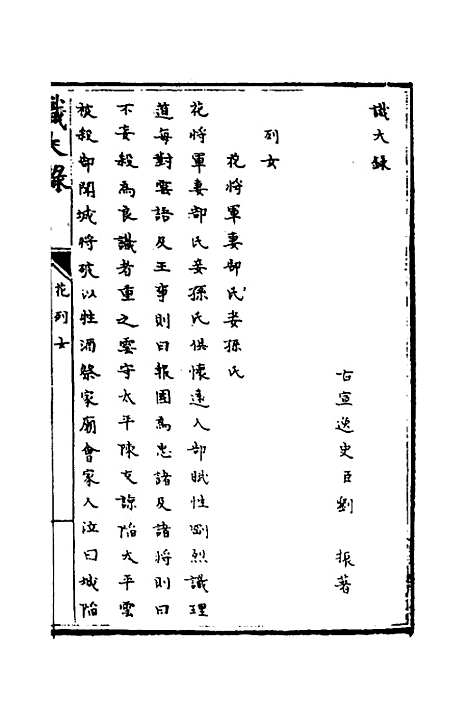 識大錄
古宣逸史臣劉 振著
列女
花將軍妻郜氏妾孫氏
花將軍妻郜氏妾孫氏俱懷遠人郜賦性剛烈識理
道每對雲語及王事則曰報國為忠諸及諸將則曰
不妄殺為良識者重之雲守太平陳友諒陷太平雲
被殺郜聞城將破以牲酒祭家廟會家人泣曰城陷
識大錄
花列女